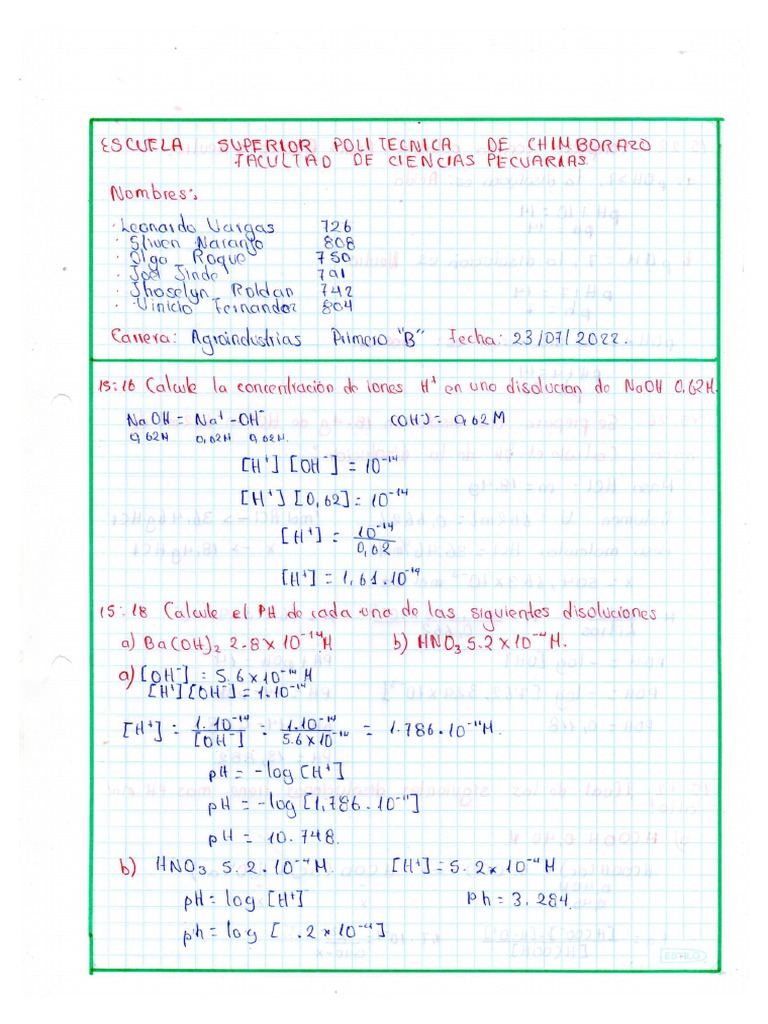 ESCUELA SUPERIOR POLITECNICA DE CHIMBORAZO
FACULTAD DE CIENCIAS PECUARIAS.
Nombres:
· Leonardo Vargas 726
· Stiven Naranjo 808
· Olga Roque 750
· Joel Jinde 791
· Jhoselyn Roldan 742
· Vinicio Fernandez 804
Carrera: Agroindustrias Primero "B" Fecha: 23/07/2022.
15:16 Calcule la concentración de iones H⁺ en una disolucion de NaOH 0,62M.
NaOH = Na⁺ - OH⁻ (OH⁻) = 0,62M
0,62M 0,62M 0,62M.
[H⁺] [OH⁻] = 10⁻¹⁴
[H⁺] [0,62] = 10⁻¹⁴
[H⁺] = 10⁻¹⁴ / 0,62
[H⁺] = 1,61.10⁻¹⁴
15:18 Calcule el PH de cada una de las siguientes disoluciones
a) Ba(OH)₂ 2.8 x 10⁻¹⁴M b) HNO₃ 5.2 x 10⁻⁴M.
a) [OH⁻] = 5.6 x 10⁻¹⁴M
[H⁺] [OH⁻] = 1.10⁻¹⁴
[H⁺] = 1.10⁻¹⁴ / [OH⁻] = 1.10⁻¹⁴ / 5.6 x 10⁻¹⁴ = 1.786.10⁻¹¹M.
pH = -log [H⁺]
pH = -log [1,786.10⁻¹¹]
pH = 10.748.
b) HNO₃ 5.2.10⁻⁴M. [H⁺] = 5.2 x 10⁻⁴M
pH = log [H⁺] Ph = 3.284.
ph = log [ .2 x 10⁻⁴]
ESTILO